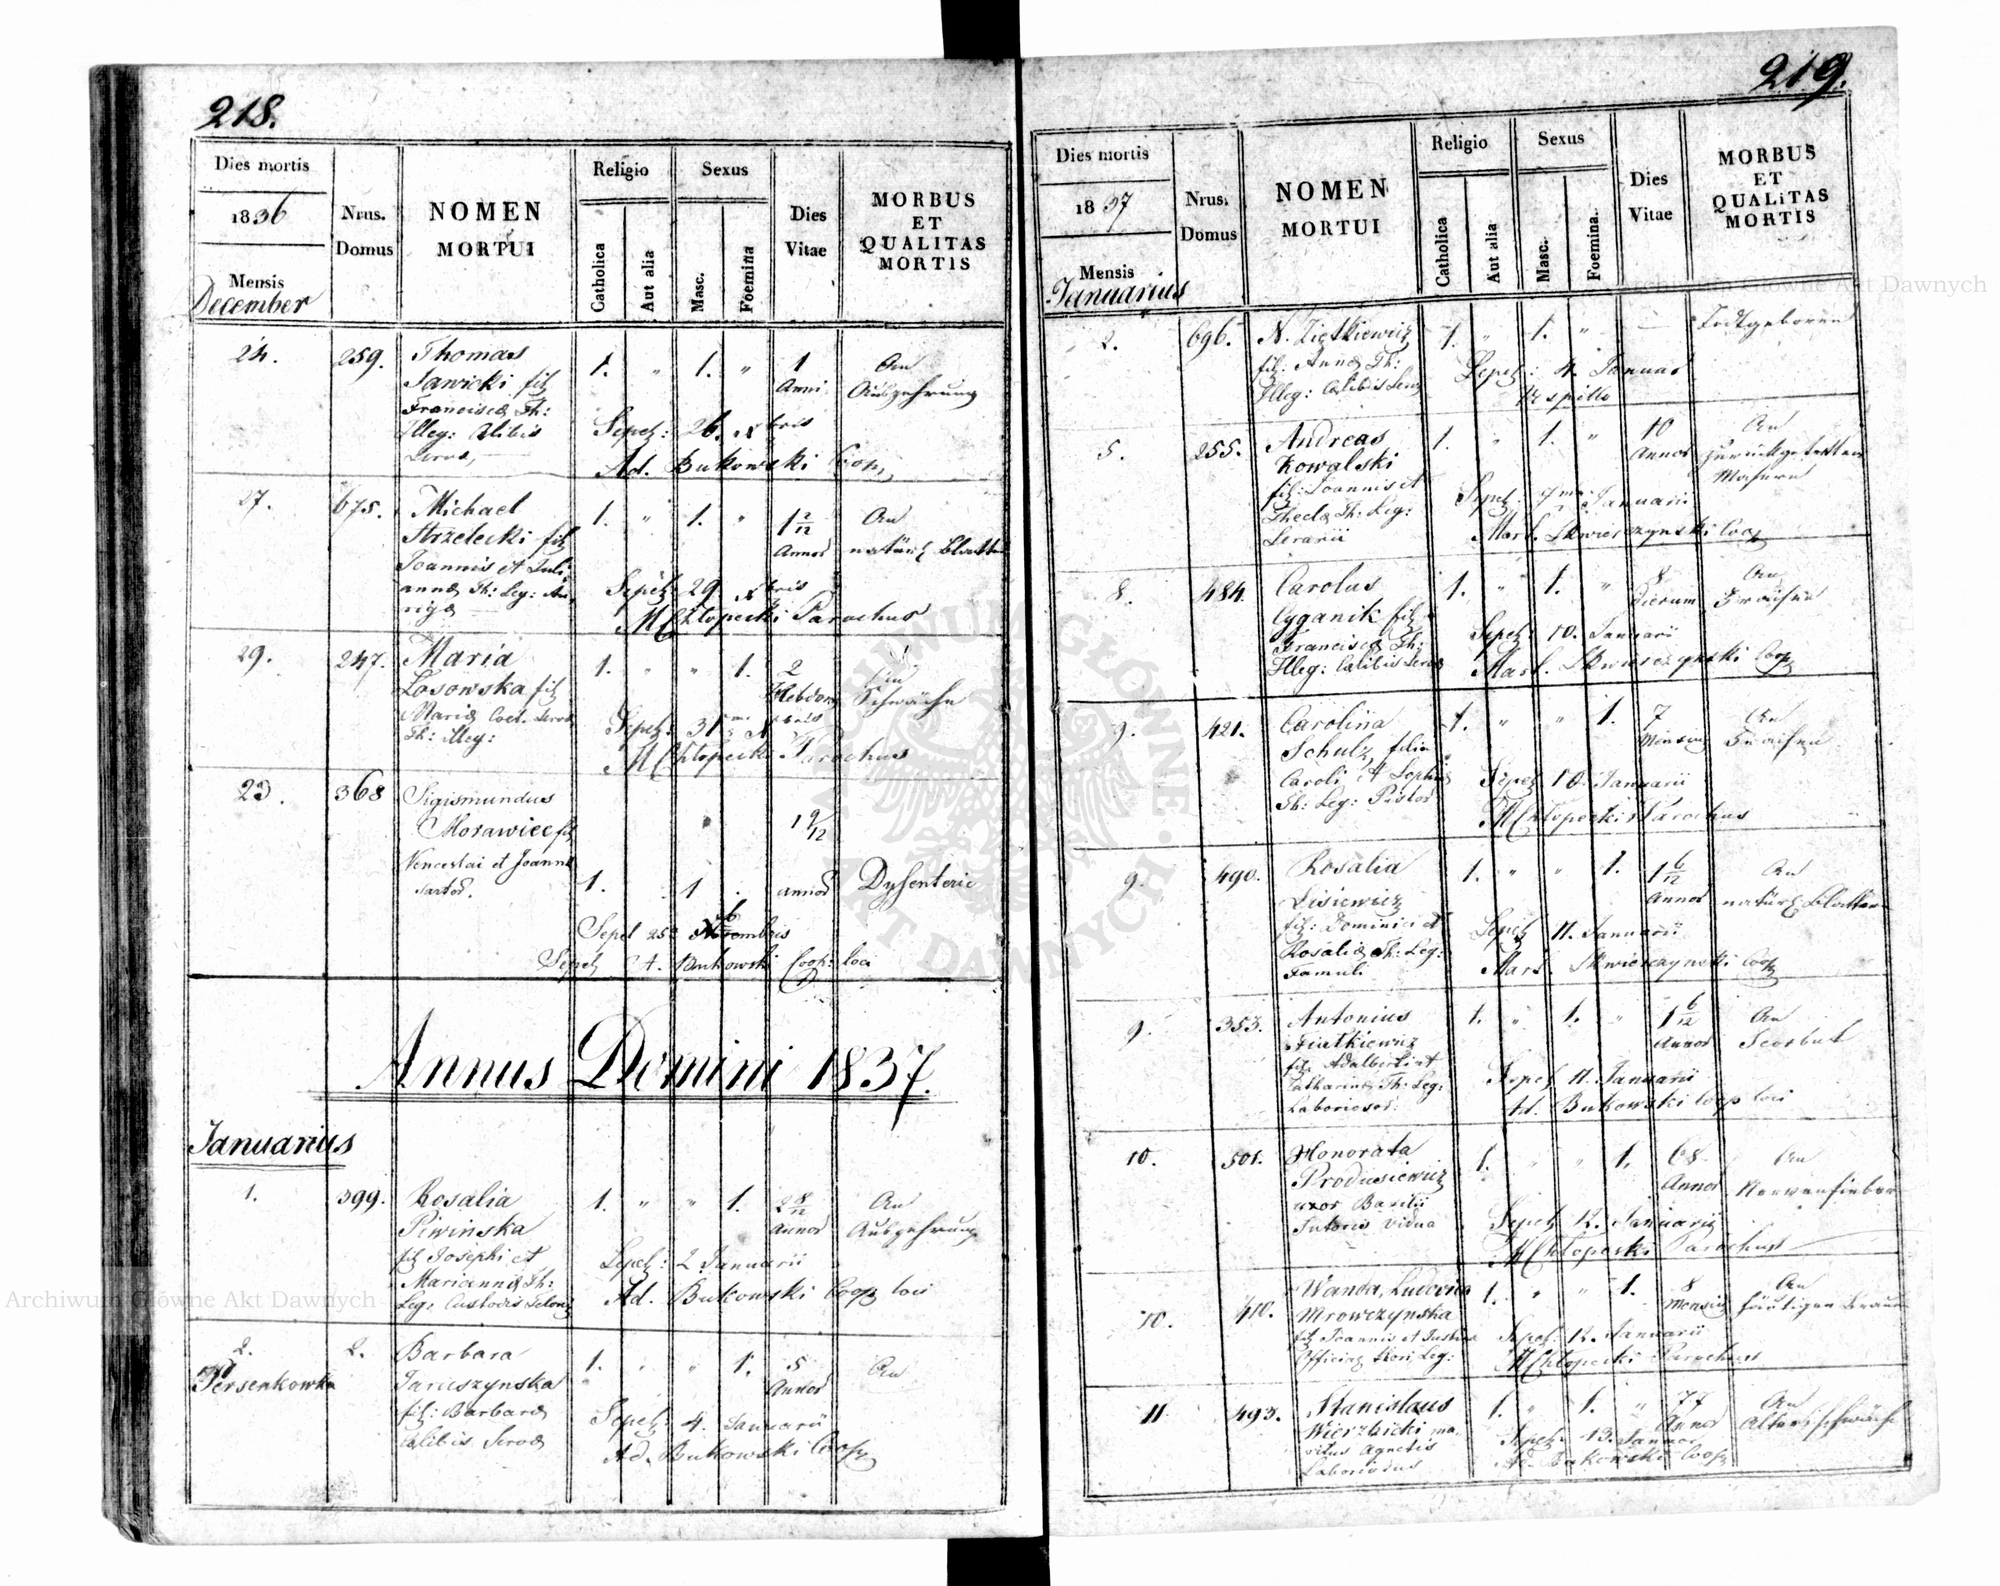 218.
Dies mortis
1836
Mensis
December
Nrus.
Domus
NOMEN
MORTUI
Religio
Catholica
Aut alia
Sexus
Masc.
Foemina
Dies
Vitae
MORBUS
ET
QUALITAS
MORTIS
24. 259. Thomas 1. " 1. " 1 An
Sawicki fil Anni Auszehrung
Francisca Th:
Illeg: Calibis Sepel: 26. Xbris
Ad. Bukowski Coop
27. 675. Michael 1. " 1. " 1 2/12 An
Strzelecki fil Annor natürl Blattern
Joannis et Juli
anna Th: Leg: Sepel: 29 Xbris
M Chłopecki Parochus
29. 247. Maria 1. " " 1. 2 An
Losowska fil Hebdom Schwäche
Maria Coel. Sepel: 31 Xbris
Th: illeg: M Chłopecki Parochus
23. 368 Sigismundus
Morawiec fil 1 9/12
Venceslai et Joanna
Sartor. 1. 1 annor Dysenterie
Sepel 25
A. Bukowski Coop: loci
Annus Domini 1837.
Januarius
1. 399. Rosalia 1. " " 1. 2 8/12 An
Piwinska Annor Auszehrung
fil Josephi et Sepel: 2 Januarii
Marianna Th: Ad. Bukowski Coop loci
Leg: Custodis
2. 2. Barbara 1. " " 1. 5 An
Persenkowka Annor
fil: Barbara Sepel: 4. Januarii
Calibis Ad. Bukowski Coop
219.
Dies mortis
1837
Mensis
Januarius
Nrus.
Domus
NOMEN
MORTUI
Religio
Catholica
Aut alia
Sexus
Masc.
Foemina.
Dies
Vitae
MORBUS
ET
QUALITAS
MORTIS
2. 696. N. Zietkiewicz 1. " 1. " Todtgeboren
fil: Anna Th: Sepel: 4. Januar
Illeg: Calibis Vespillo
5. 255. Andreas 1. " 1. " 10 An
Kowalski Annor zurückgetretten
fil: Joannis et Sepel: 7ma Januarii Masern
Thecla Th: Leg: Mart. Skwierczynski Coop
8. 484. Carolus 1. " 1. " 8 An
Cyganik fil Dierum Fraisen
Francisca Th: Sepel: 10. Januarii
Illeg: Calibis Mart. Skwierczynski Coop
9. 421. Carolina 1. " " 1. 7 An
Schulz, filia Mensium Fraisen
Caroli et Sophia Sepel 10. Januarii
Th: Leg: Pistor M Chłopecki Parochus
9. 490. Rosalia 1. " " 1. 1 6/12 An
Lisiewicz Annor natürl Blattern
fil: Dominici et Sepel 11. Januarii
Rosalia Th: Leg: Mart. Skwierczynski Coop
Famuli
9. 353. Antonius 1. " 1. " 1 6/12 An
Annor Scorbut
fil: Adalberti et Sepel 11. Januarii
Catharina Th: Leg: Ad. Bukowski Coop loci
Laboriosor:
10. 501. Honorata 1. " " 1. 68 An
Produsiewicz Annor Nervenfieber
uxor Basilii Sepel 12. Januarii
Sutoris vidua M Chłopecki Parochus
10. 410. Wanda, Ludovica 1. " " 1. 8 An
Mrowczynska Mensium häutigen Braune
fil Joannis et Sepel: 12. Januarii
Leg: M Chłopecki Parochus
11. 493. Stanislaus 1. " 1. " 77 An
Wierzbicki ma- Annor Altersschwäche
ritus Agnetis Sepel: 13. Januar
Laboriosus Ad. Bukowski Coop
Archiwum Główne Akt Dawnych
Archiwum Główne Akt Dawnych
ARCHIWUM GŁÓWNE AKT DAWNYCH